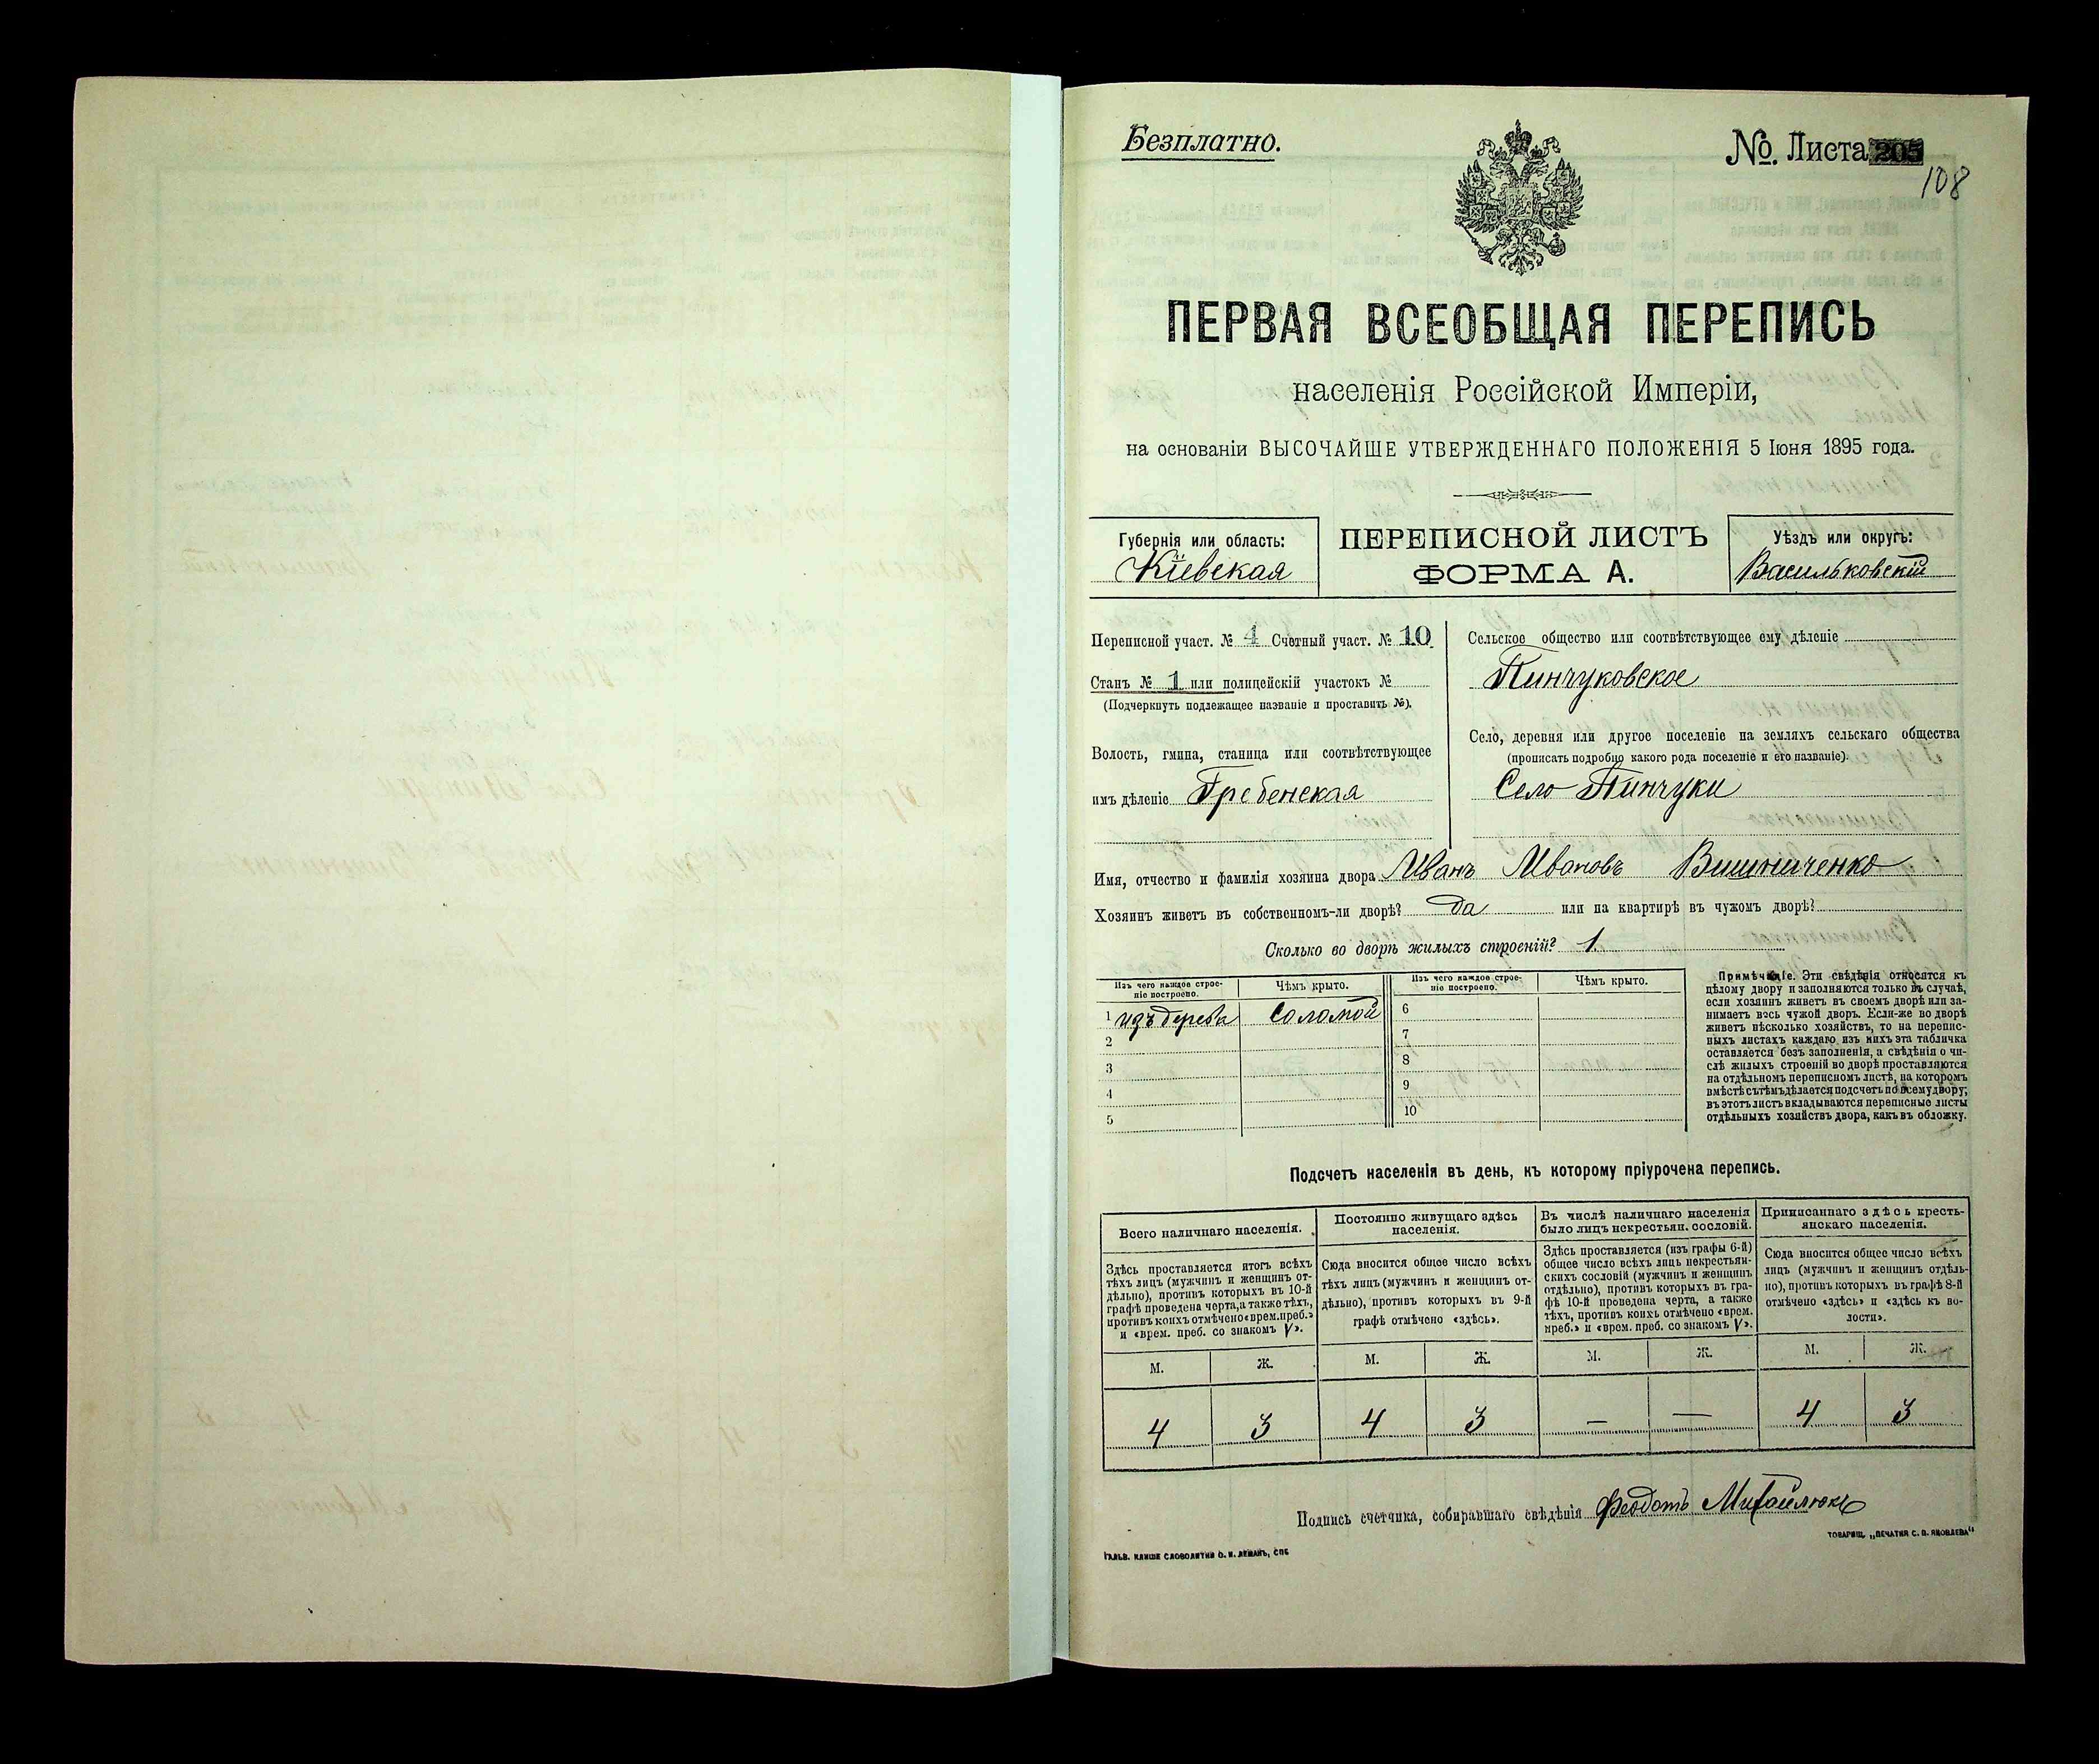 Безплатно.
№. Листа 205
108
ПЕРВАЯ ВСЕОБЩАЯ ПЕРЕПИСЬ
населенія Россійской Имперіи,
на основаніи ВЫСОЧАЙШЕ УТВЕРЖДЕННАГО ПОЛОЖЕНІЯ 5 Іюня 1895 года.
Губернія или область:
Кіевская
ПЕРЕПИСНОЙ ЛИСТЪ
ФОРМА А.
Уѣздъ или округъ:
Васильковскій
Переписной участ. № 4 Счетный участ. № 10
Станъ № 1 или полицейскій участокъ №
(Подчеркнуть подлежащее названіе и проставить №).
Волость, гмина, станица или соотвѣтствующее
имъ дѣленіе Гребенская
Сельское общество или соотвѣтствующее ему дѣленіе
Пинчуковское
Село, деревня или другое поселеніе на земляхъ сельскаго общества
(прописать подробно какого рода поселеніе и его названіе).
Село Пинчуки
Имя, отчество и фамилія хозяина двора Иванъ Ивановъ Вишниченко
Хозяинъ живетъ въ собственномъ-ли дворѣ? да или на квартирѣ въ чужомъ дворѣ?
Сколько во дворѣ жилыхъ строеній? 1.
Изъ чего каждое строе-
ніе построено.
Чѣмъ крыто.
Изъ чего каждое строе-
ніе построено.
Чѣмъ крыто.
1 изъ дерева Соломой
2
3
4
5
6
7
8
9
10
Примѣчаніе. Эти свѣдѣнія относятся къ
цѣлому двору и заполняются только въ случаѣ,
если хозяинъ живетъ въ своемъ дворѣ или за-
нимаетъ весь чужой дворъ. Если-же во дворѣ
живетъ нѣсколько хозяйствъ, то на перепис-
ныхъ листахъ каждаго изъ нихъ эта табличка
оставляется безъ заполненія, а свѣдѣнія о чи-
слѣ жилыхъ строеній во дворѣ проставляются
на отдѣльномъ переписномъ листѣ, на которомъ
вмѣстѣ съ тѣмъ дѣлается подсчетъ по всему двору;
въ этотъ листъ вкладываются переписные листы
отдѣльныхъ хозяйствъ двора, какъ въ обложку.
Подсчетъ населенія въ день, къ которому пріурочена перепись.
Всего наличнаго населенія.
Здѣсь проставляется итогъ всѣхъ
тѣхъ лицъ (мужчинъ и женщинъ от-
дѣльно), противъ которыхъ въ 10-й
графѣ проведена черта, а также тѣхъ,
противъ коихъ отмѣчено «врем. преб.»
и «врем. преб. со знакомъ V».
Постоянно живущаго здѣсь
населенія.
Сюда вносится общее число всѣхъ
тѣхъ лицъ (мужчинъ и женщинъ от-
дѣльно), противъ которыхъ въ 9-й
графѣ отмѣчено «здѣсь».
Въ числѣ наличнаго населенія
было лицъ некрестьян. сословій.
Здѣсь проставляется (изъ графы 6-й)
общее число всѣхъ лицъ некрестьян-
скихъ сословій (мужчинъ и женщинъ
отдѣльно), противъ которыхъ въ гра-
фѣ 10-й проведена черта, а также
тѣхъ, противъ коихъ отмѣчено «врем.
преб.» и «врем. преб. со знакомъ V».
Приписаннаго здѣсь кресть-
янскаго населенія.
Сюда вносится общее число всѣхъ
лицъ (мужчинъ и женщинъ отдѣль-
но), противъ которыхъ въ графѣ 8-й
отмѣчено «здѣсь» и «здѣсь къ во-
лости».
М. Ж. М. Ж. М. Ж. М. Ж.
4 3 4 3 — — 4 3
Подпись счетчика, собиравшаго свѣдѣнія Феодотъ Михайлюкъ
ТОВАРИЩ. „ПЕЧАТНЯ С. П. ЯКОВЛЕВА“
ГАЛЬВ. КЛИШЕ СЛОВОЛИТНИ О. И. ЛЕМАНЪ, СПБ